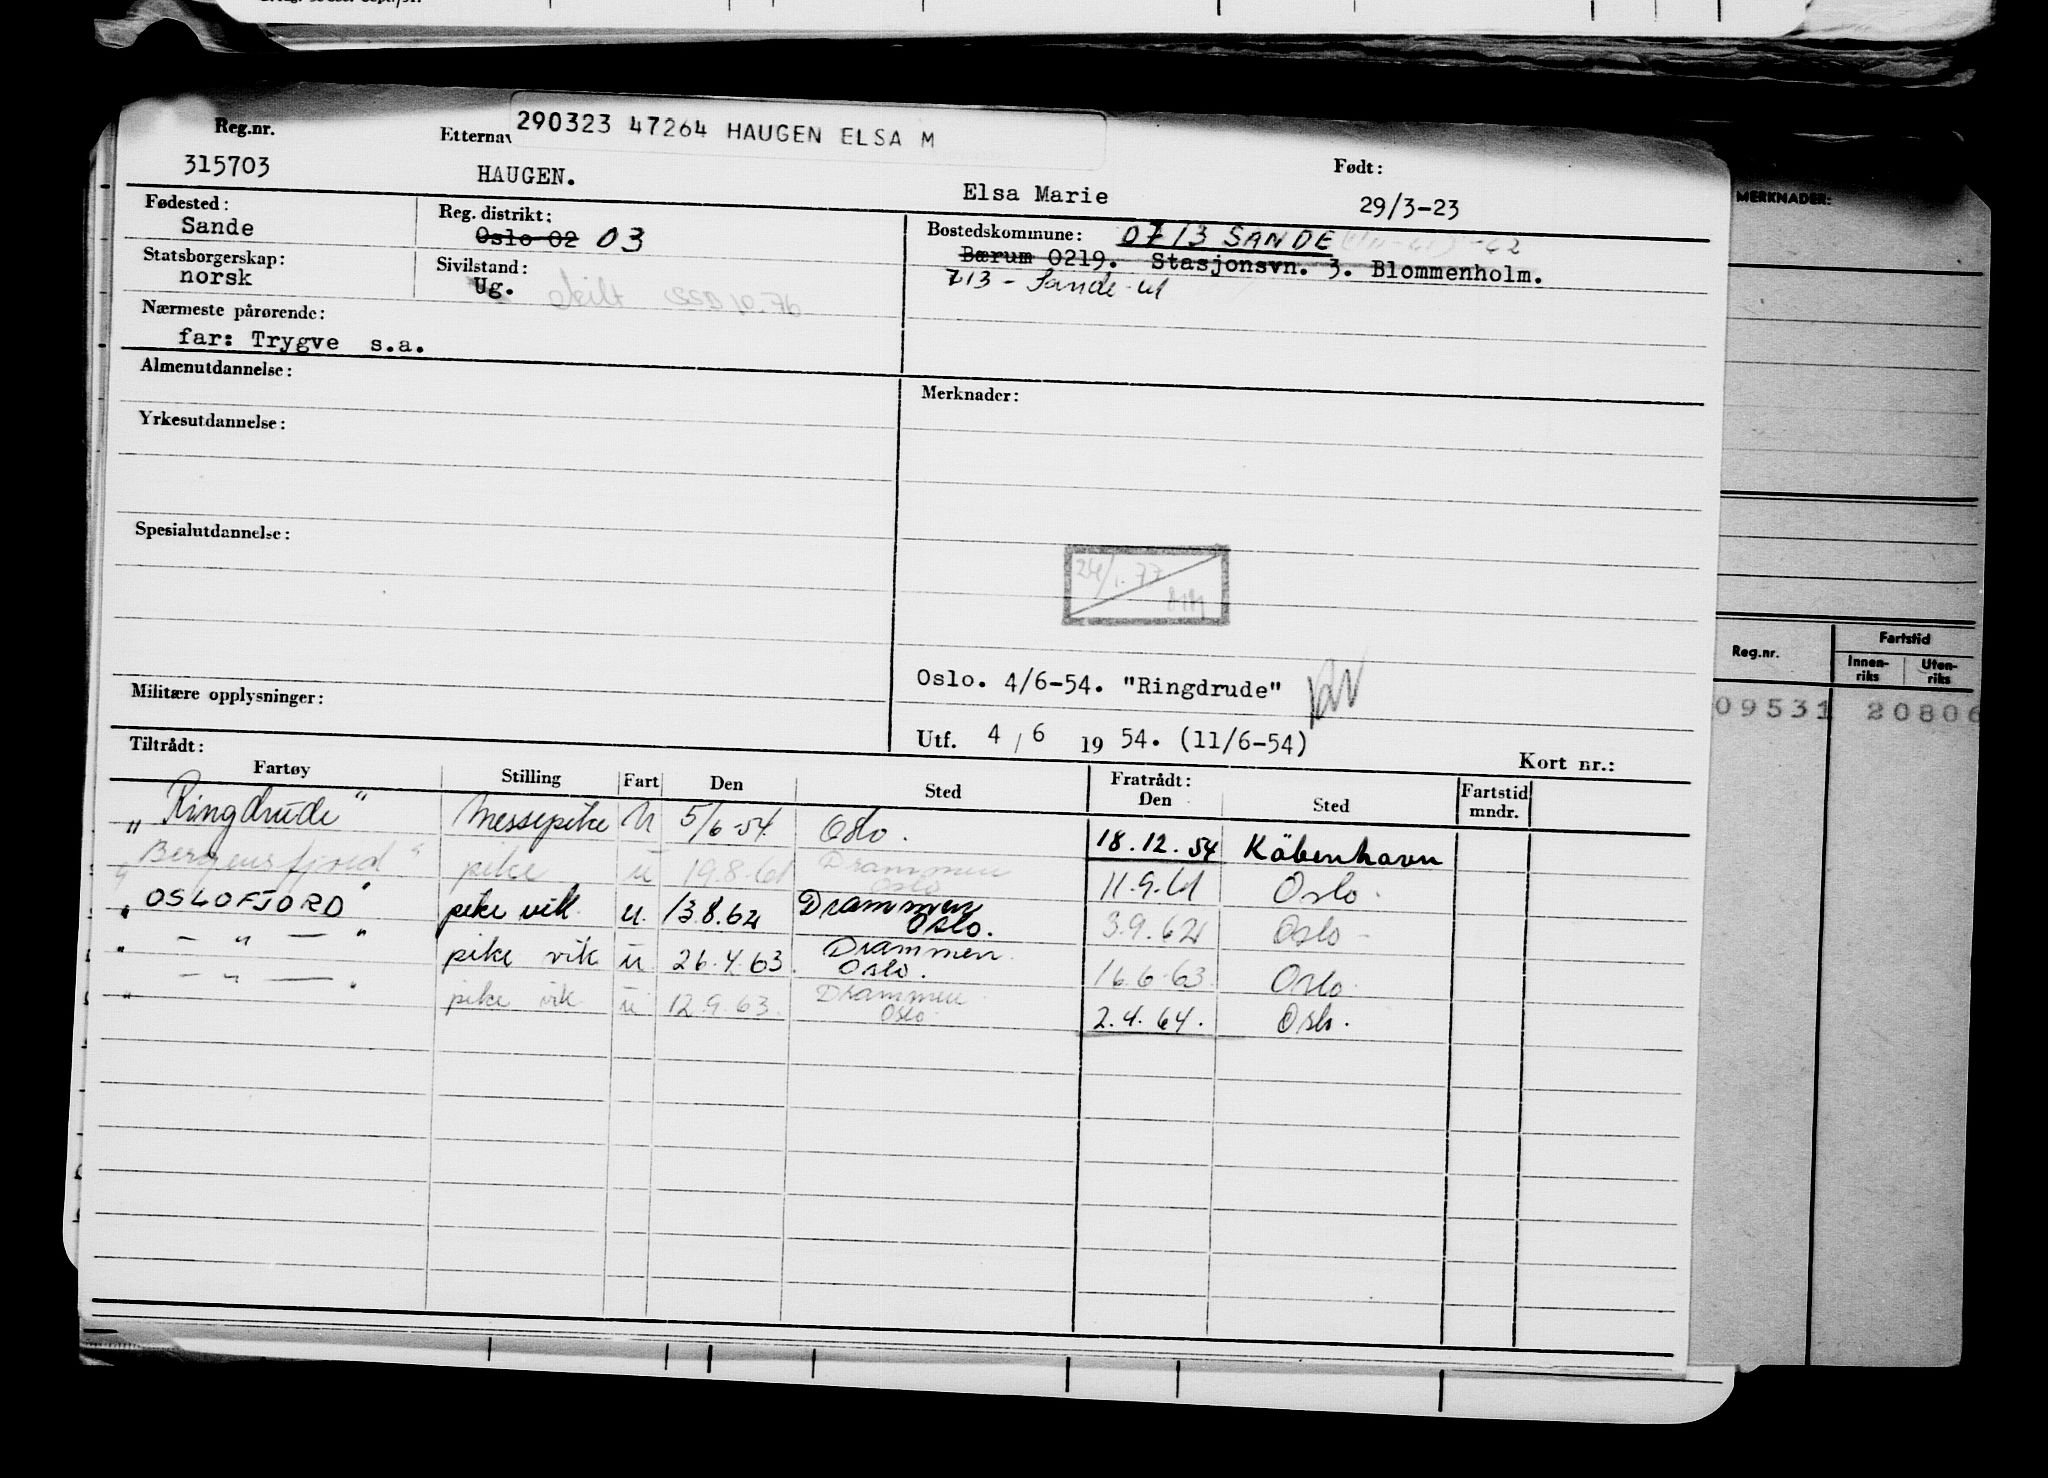 290323 47264 HAUGEN ELSA M
Reg.nr. Etternav Født:
315703 HAUGEN. Elsa Marie 29/3-23
Fødested: Reg. distrikt: Bostedskommune: 0713 SANDE
Sande Oslo 02 03 Bærum 0219. Stasjonsvn. 3. Blommenholm.
Statsborgerskap: Sivilstand: 713 - Sande
norsk Ug. skilt
Nærmeste pårørende:
far: Trygve s.a.
Almenutdannelse: Merknader:
Yrkesutdannelse:
Spesialutdannelse:
24/1.77
Oslo. 4/6-54. "Ringdrude"
Militære opplysninger:
Utf. 4/6 1954. (11/6-54)
Tiltrådt: Kort nr.:
Fartøy Stilling Fart Den Sted Fratrådt: Den Sted Fartstid mndr.
"Ringdrude" Messepike U 5/6-54 Oslo. 18.12.54 Köbenhavn
"Bergensfjord" pike u 19.8.61 Drammen Oslo 11.9.61 Oslo.
"OSLOFJORD" pike vik. u. 13.8.62 Drammen Oslo. 3.9.62 Oslo -
" - " - " pike vik u 26.4.63. Drammen Oslo. 16.6.63 Oslo.
" - " - " pike vik u 12.9.63. Drammen Oslo. 2.4.64. Oslo.
MERKNADER:
Reg.nr. Fartstid
Innenriks Utenriks
09531 20806